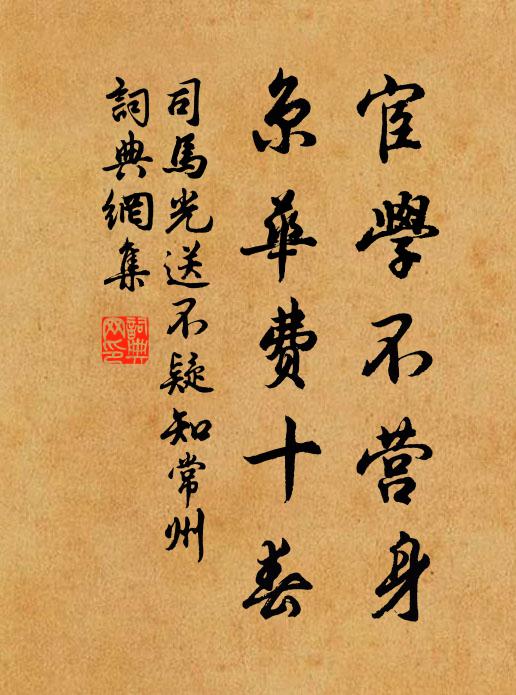 宦學不营身
京華費十春
司馬光送不疑知常州
詞典網集
詞典
网印